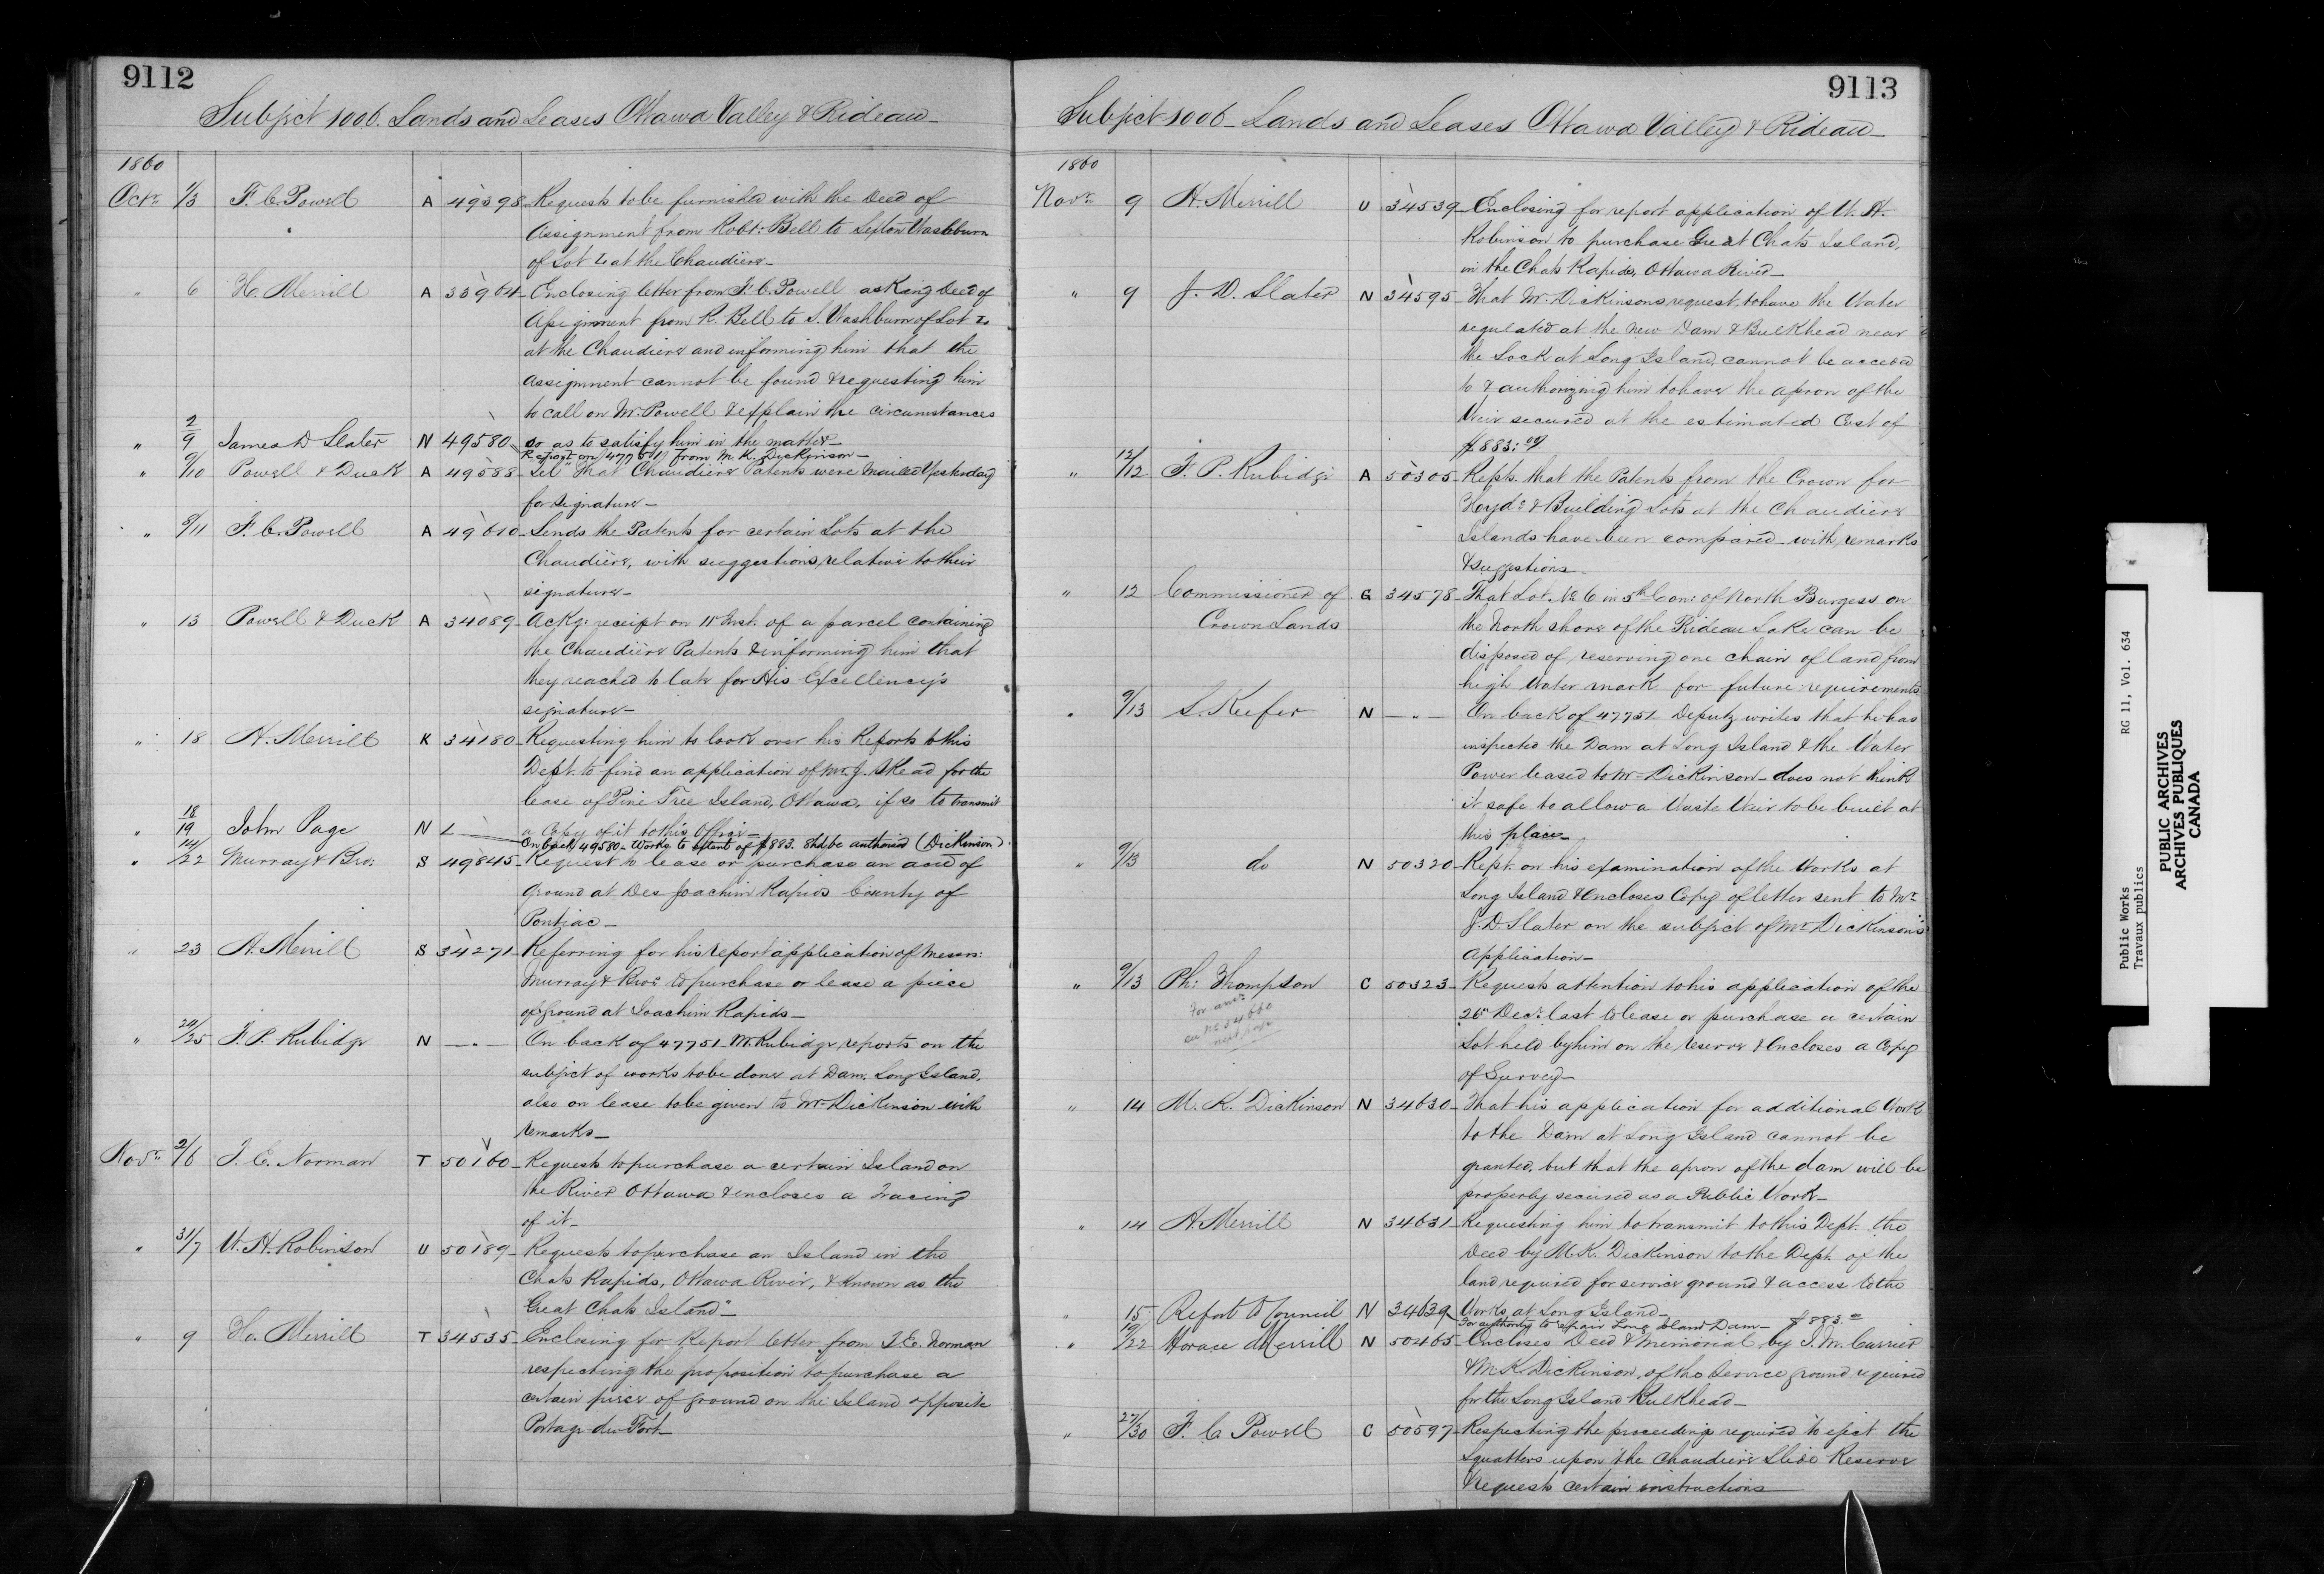 9112
Subject 1006. Lands and Leases Ottawa Valley & Rideau
1860
Octr. 1/3 F. C. Powell A 49398 Requests to be furnished with the Deed of
Assignment from Robt: Bell to Sexton Washburn
of Lot at the Chaudiere
" 6 H. Merrill A 33964 Enclosing letter from F. C. Powell asking Deed of
Assignment from R. Bell to S. Washburn of Lot
at the Chaudiere and informing him that the
Assignment cannot be found & requesting him
to call on Mr. Powell & explain the circumstances
" 2/9 James D Slater N 49580 so as to satisfy him in the matter
Report on 47751 from M. K. Dickinson
" 9/10 Powell & Duck A 49588 Tel" That Chaudiere Patents were mailed Yesterday
for signature
" 8/11 F. C. Powell A 49610 Sends the Patents for certain Lots at the
Chaudiere, with suggestions relative to their
signature
" 13 Powell & Duck A 34089 Ackg: receipt on 11 Inst. of a parcel containing
the Chaudiere Patents & informing him that
they reached to late for His Excellency's
signature
" 18 H. Merrill K 34180 Requesting him to look over his Reports to this
Dept. to find an application of Mr. J. Skead for the
lease of Pine Tree Island, Ottawa, if so to transmit
" 18/19 John Page N L a Copy of it to this Office
On back 49580 - Works to extent of $883. Shd be authorised (Dickinson)
" 14/22 Murray & Bro: S 49845 Request to lease or purchase an acre of
ground at Des Joachim Rapids County of
Pontiac
" 23 H. Merrill S 34271 Referring for his report application of Messrs:
Murray & Bros. to purchase or lease a piece
of ground at Joachim Rapids
" 24/25 F. P. Rubidge N — " — On back of 47751 Mr Rubidge, reports on the
subject of works to be done at Dam, Long Island,
also on lease to be given to Mr Dickinson with
remarks
Novr. 2/6 T. E. Norman T 50160 Requests to purchase a certain Island on
the River Ottawa & encloses a Tracing
of it
" 31/7 W. H. Robinson U 50189 Requests to purchase an Island in the
Chats Rapids, Ottawa River, & known as the
"Great Chats Island"
" 9 Ho. Merrill T 34535 Enclosing for Report letter from T. E. Norman
respecting the proposition to purchase a
certain piece of ground on the Island opposite
Portage-du-Fort
9113
Subject 1006 Lands and Leases Ottawa Valley & Rideau
1860
Novr. 9 H. Merrill U 34539 Enclosing for report application of W. H.
Robinson to purchase Great Chats Island,
in the Chats Rapids, Ottawa River
" 9 J. D. Slater N 34595 That Mr. Dickinsons request to have the Water
regulated at the New Dam & Bulkhead near
the Lock at Long Island, cannot be acceded
to & authorizing him to have the apron of the
Weir secured at the estimated Cost of
$883:00
" 12/12 F. P. Rubidge A 50305 Repts. that the Patents from the Crown for
Hydc & Building Lots at the Chaudiere
Islands have been compared with remarks
& suggestions
" 12 Commissioner of G 34578 That Lot. No 6 in 5th Con: of North Burgess on
Crown Lands the North shore of the Rideau Lake can be
disposed of, reserving one chain of land from
high water mark for future requirements
" 9/13 S. Keefer N — " — On back of 47751 Deputy writes that he has
inspected the Dam at Long Island & the Water
Power leased to Mr Dickinson - does not think
it safe to allow a Waste Weir to be built at
this place
" 9/13 do N 50320 Rept. on his examination of the Works at
Long Island & encloses Copy of letter sent to Mr.
J. D. Slater on the subject of Mr. Dickinson's
Application
" 9/13 Ph: Thompson C 50323 Requests attention to his application of the
For ansr. 26" Decr. last to lease or purchase a certain
see No 34660 Lot held by him on the reserve & encloses a Copy
next page of Survey
" 14 M. K. Dickinson N 34630 That his application for additional Work
to the Dam at Long Island cannot be
granted, but that the apron of the dam will be
properly secured as a Public Work
" 14 H. Merrill N 34631 Requesting him to transmit to this Dept. the
Deed by M. K. Dickinson to the Dept. of the
land required for service ground & access to the
" 15 Report to Council N 34639 Works at Long Island
For authority to repair Long Island Dam - $883.00
" /22 Horace Merrill N 50465 Encloses Deed & Memorial by J. M. Currier
& M. K. Dickinson, of the Service ground required
for the Long Island Bulkhead
" 27/30 F. C. Powell C 50597 Respecting the proceedings required to eject the
Squatters upon the Chaudiere Slide Reserve
& requests certain instructions
Public Works RG 11, Vol. 634
Travaux publics
PUBLIC ARCHIVES
ARCHIVES PUBLIQUES
CANADA